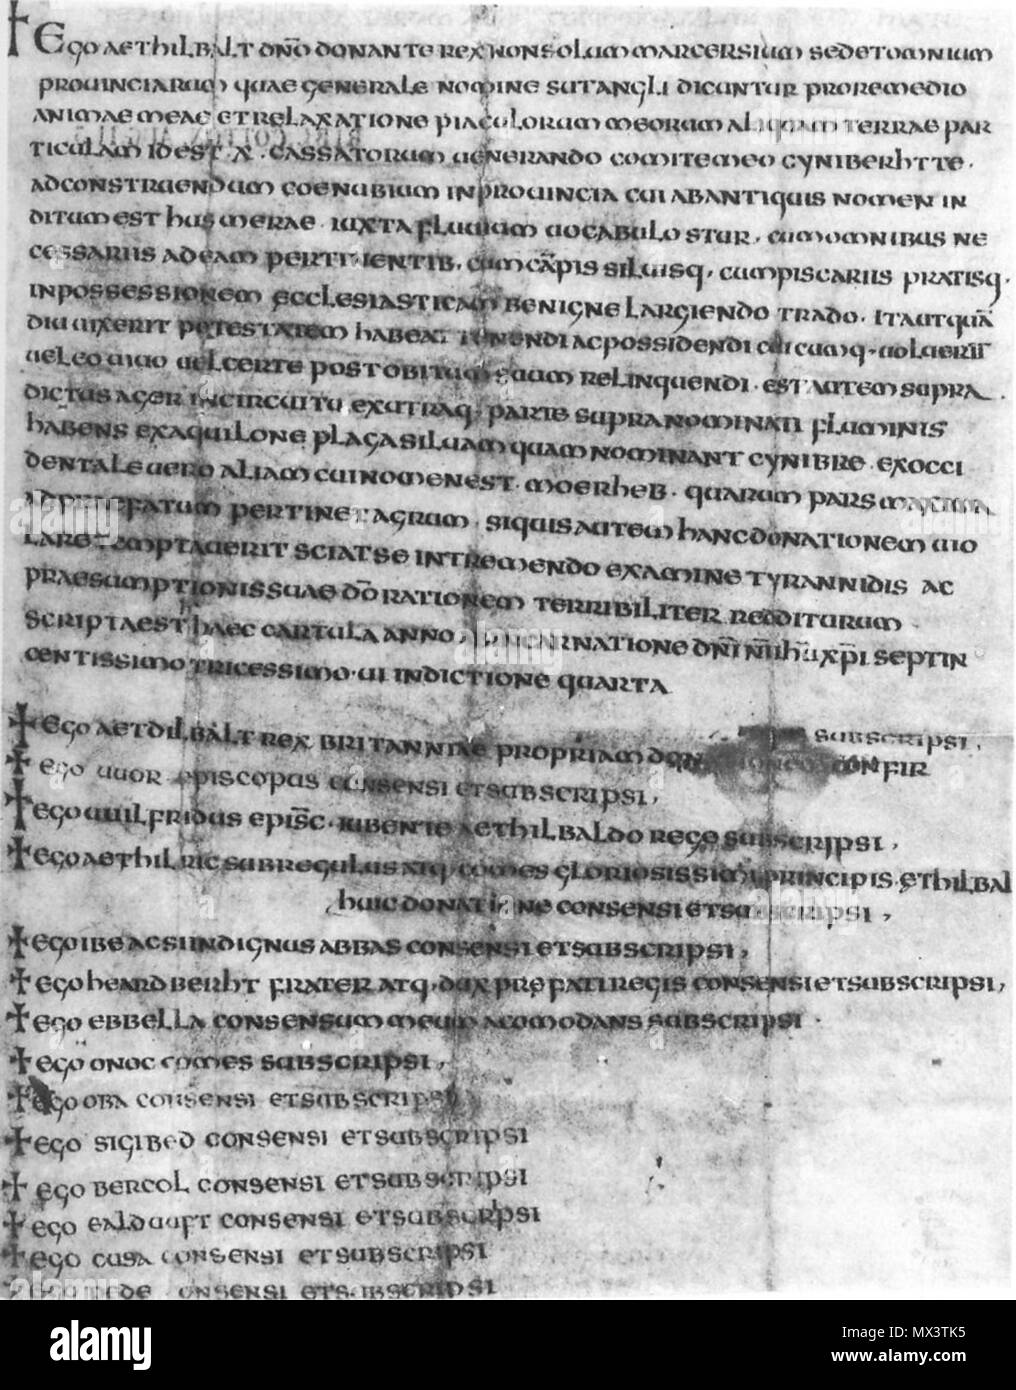 † Ego aethilbalt dn̄o donante rex non solum marcersium sed et omnium
prouinciarum quae generale nomine sutangli dicuntur pro remedio
animae meae et relaxatione piaculorum meorum aliquam terrae par
ticulam id est x. cassatorum uenerando comite meo cyniberhtte .
ad construendum coenubium in prouincia cui ab antiquis nomen in
ditum est husmerae . iuxta fluuium uocabulo stur . cum omnibus ne
cessariis ad eam pertinentib. cum cāpis siluisq, cum piscariis pratisq.
in possessionem ecclesiasticam benigne largiendo trado . ita ut quā
diu uixerit potestatem habeat tenendi ac possidendi cuicumq. uoluerit
uel eo uiuo uel certe post obitum suum relinquendi . est autem supra
dictus ager in circuitu ex utraq, parte supranominati fluminis
habens ex aquilone plaga siluam quam nominant cynibre . ex occi
dentale uero aliam cui nomen est . moerheb . quarum pars maxima
ad praefatum pertinet agrum . siquis autem hanc donationem uio
lare temptauerit sciat se in tremendo examine tyrannidis ac
praesumptionis suae dō rationem terribiliter redditurum .
scripta est haec cartula anno ab incarnatione dn̄i n̄i ihū xp̄i septin
centissimo tricessimo . ui indictione quarta
† ego aetdilbalt rex britanniae propriam donationem confir
subscripsi,
† ego uuor episcopus consensi et subscripsi,
† ego uuilfridus episc̄. iubente aethilbaldo rege subscripsi,
† ego aethilric subregulus atq, comes gloriosissimi principis ethilbal
huic donatione consensi et subscripsi,
† ego ibe acsi indignus abbas consensi et subscripsi,
† ego heardberht frater atq, dux praefati regis consensi et subscripsi,
† ego ebbella consensum meum acomodans subscripsi .
† ego onoc comes subscripsi,
† ego oba consensi et subscripsi
† ego sigibed consensi et subscripsi
† ego bercol consensi et subscripsi
† ego ealduuft consensi et subscripsi
† ego cusa consensi et subscripsi
† ego pede consensi et subscripsi
alamy
Image ID: MX3TK5
www.alamy.com